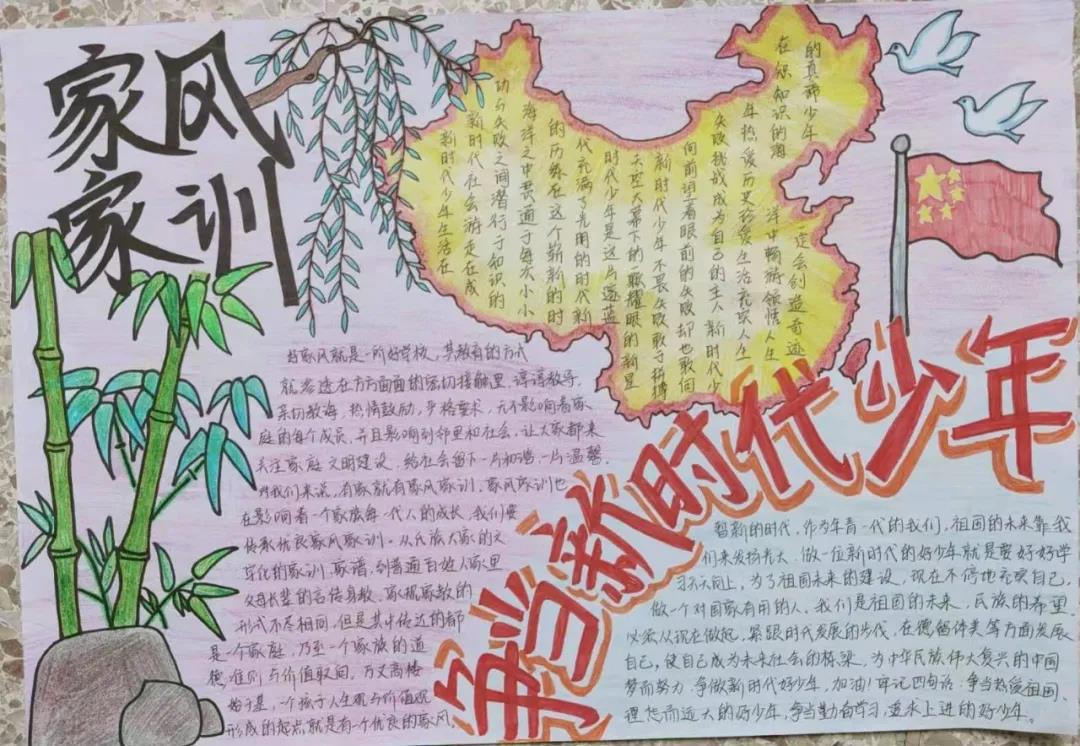 家风
家训
新时代少年生活在
新时代社会游走在成
功与失败之间潜行于知识的
海洋之中贯通于每次小小
的历练在这个崭新的时
代充满了光明的时代新
时代少年是这片蓝
天空大幕下的最耀眼的新星
新时代少年不畏失败敢于拼搏
向前望着眼前的失败却也敢向
失败挑战成为自己的主人新时代少
年热爱历史珍爱生活充实人生
在知识的海洋中畅游领悟人生
的真谛少年一定会创造奇迹
好家风就是一所好学校，其教育的方式
就渗透在方方面面的密切接触里，谆谆教导，
亲切教诲，热情鼓励，严格要求，无不影响着家
庭的每个成员，并且影响到邻里和社会，让大家都来
关注家庭文明建设，给社会留下一片和谐，一片温馨。
对我们来说，有家就有家风家训，家风家训也
在影响着一个家族每一代人的成长，我们要
传承优良家风家训。从氏族大家的文
字化的家训、家谱，到普通百姓人家里
父母长辈的言传身教，家规家教的
形式不尽相同，但是其中传达的都
是一个家庭，乃至一个家族的道
德准则与价值取向。万丈高楼
始于基，一个孩子人生观与价值观
形成的起点就是有一个优良的家风
争当新时代少年
崭新的时代，作为年青一代的我们，祖国的未来靠我
们来发扬光大，做一位新时代的好少年就是要好好学
习天天向上，为了祖国未来的建设，现在不停地充实自己，
做一个对国家有用的人，我们是祖国的未来，民族的希望
必须从现在做起，紧跟时代发展的步伐，在德智体美等方面发展
自己，使自己成为未来社会的栋梁，为中华民族伟大复兴的中国
梦而努力，争做新时代好少年，加油！牢记四句话：争当热爱祖国、
理想而远大的好少年，争当勤奋学习，追求上进的好少年。